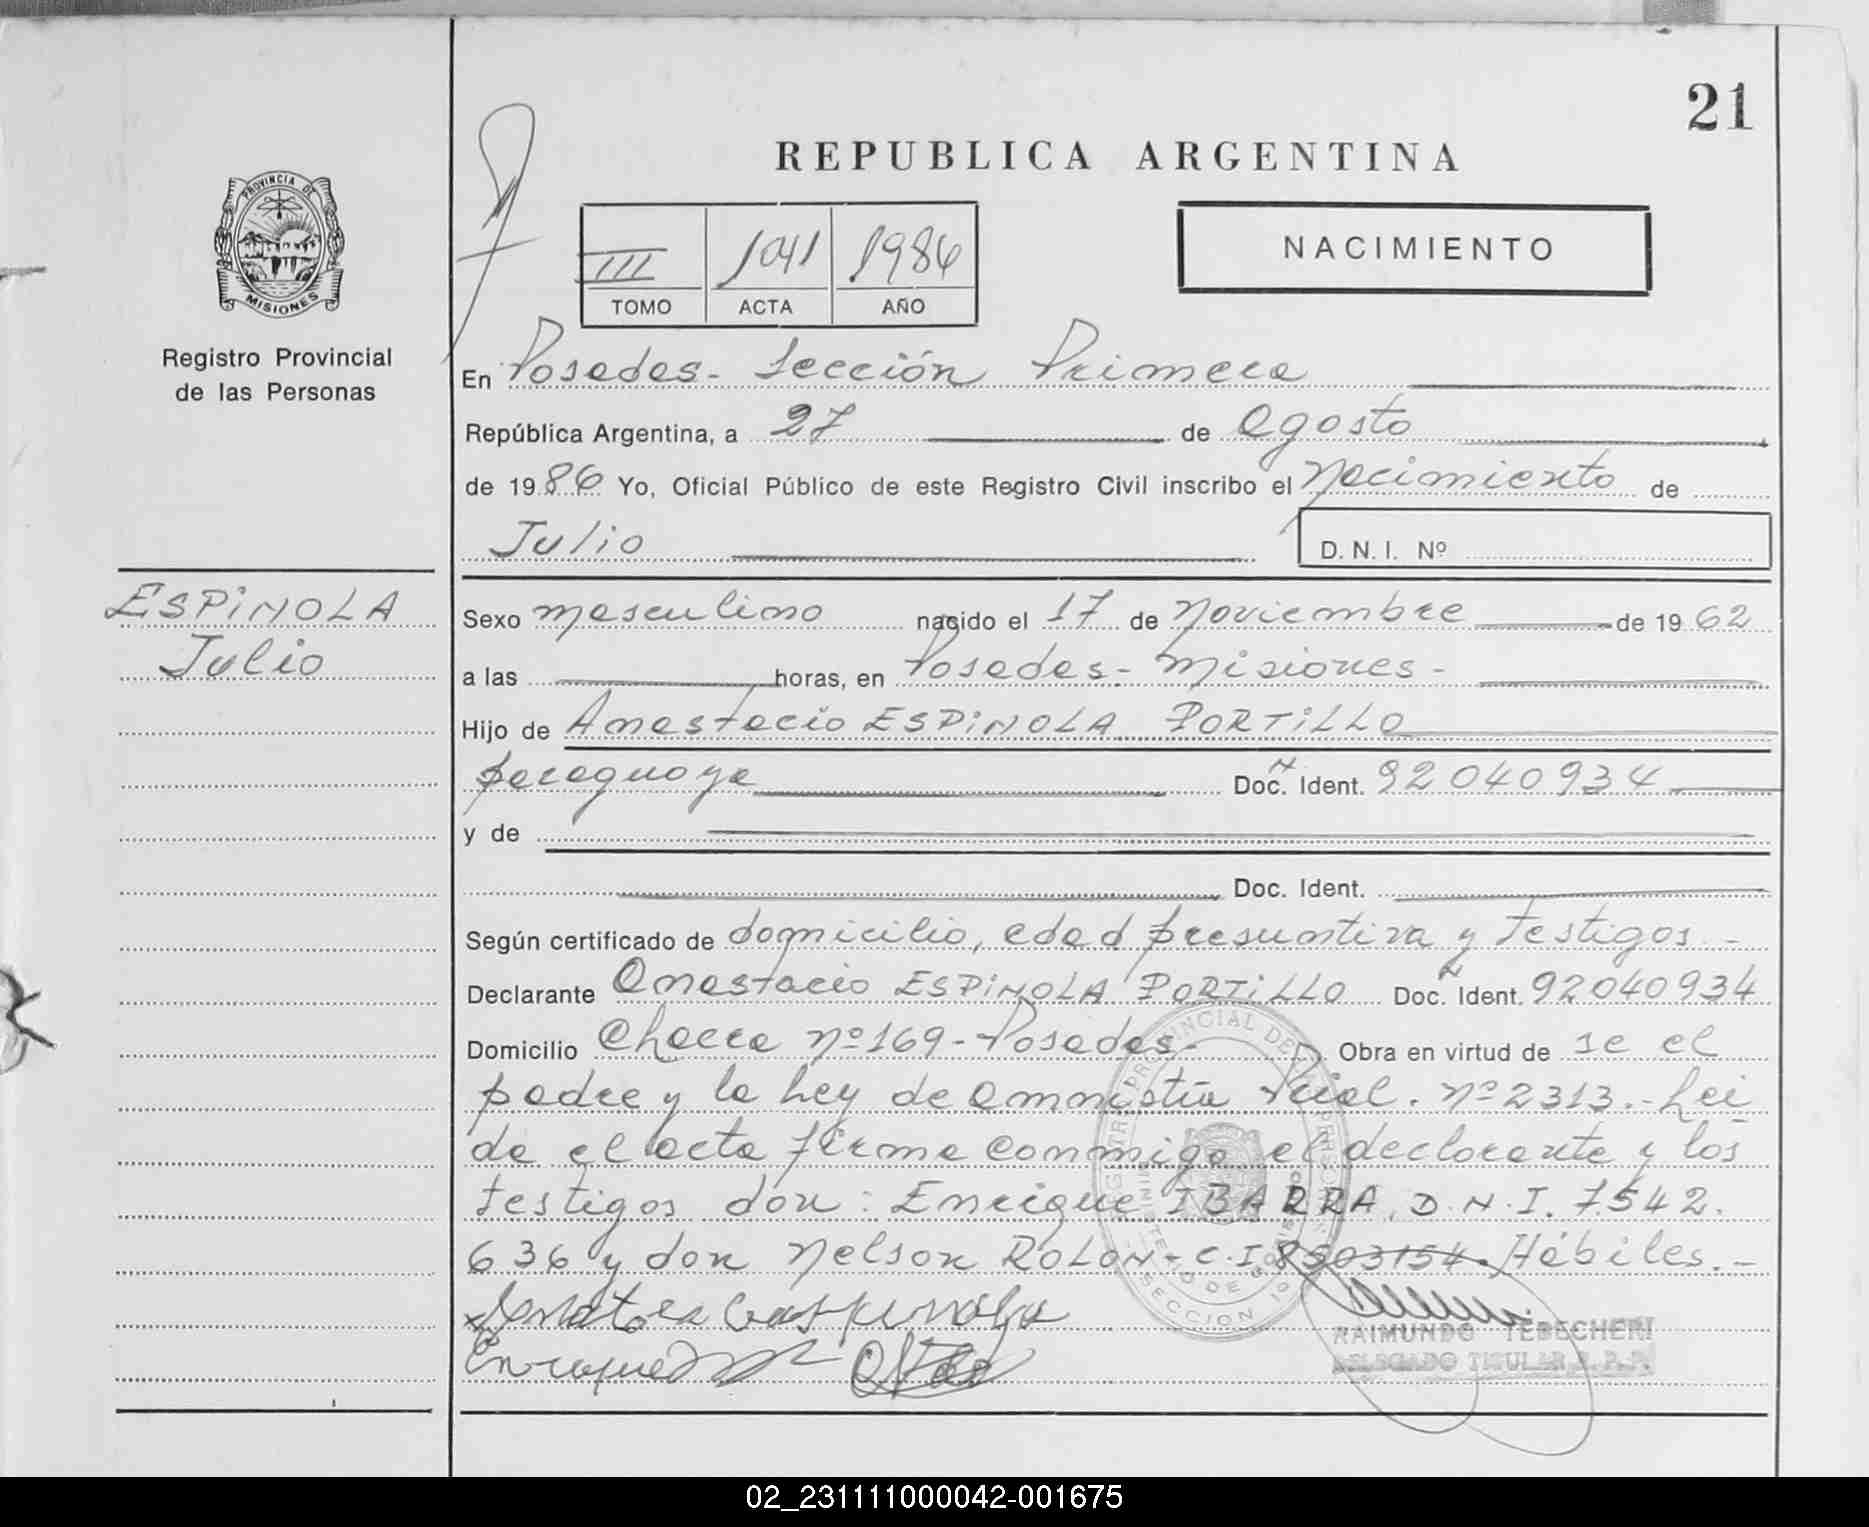 21
REPUBLICA ARGENTINA
PROVINCIA DE
MISIONES
Registro Provincial
de las Personas
III 1041 1986
TOMO ACTA AÑO
NACIMIENTO
En Posadas - Sección Primera
República Argentina, a 27 de Agosto
de 1986 Yo, Oficial Público de este Registro Civil inscribo el Nacimiento de
Julio
D. N. I. Nº
ESPINOLA
Julio
Sexo masculino nacido el 17 de Noviembre de 1962
a las horas, en Posadas - Misiones -
Hijo de Anastacio ESPINOLA PORTILLO
paraguaya Doc. Ident. 92040934
y de
Doc. Ident.
Según certificado de domicilio, edad presuntiva y testigos -
Declarante Anastacio ESPINOLA PORTILLO Doc. Ident. 92040934
Domicilio Chacra nº 169 - Posadas - Obra en virtud de se el
padre y la ley de amnistía Nº 2313.- Lei
da el acta firma conmigo el declarante y los
testigos don: Enrique IBARRA D.N.I. 7.542.
636 y don Nelson ROLON - C.I. 8503154. Hábiles. -
REGISTRO PROVINCIAL DE
MINISTERIO DE GOBIERNO
SECCION 10
RAIMUNDO TEBECHERI
DELEGADO TITULAR R. P. P.
02_231111000042-001675